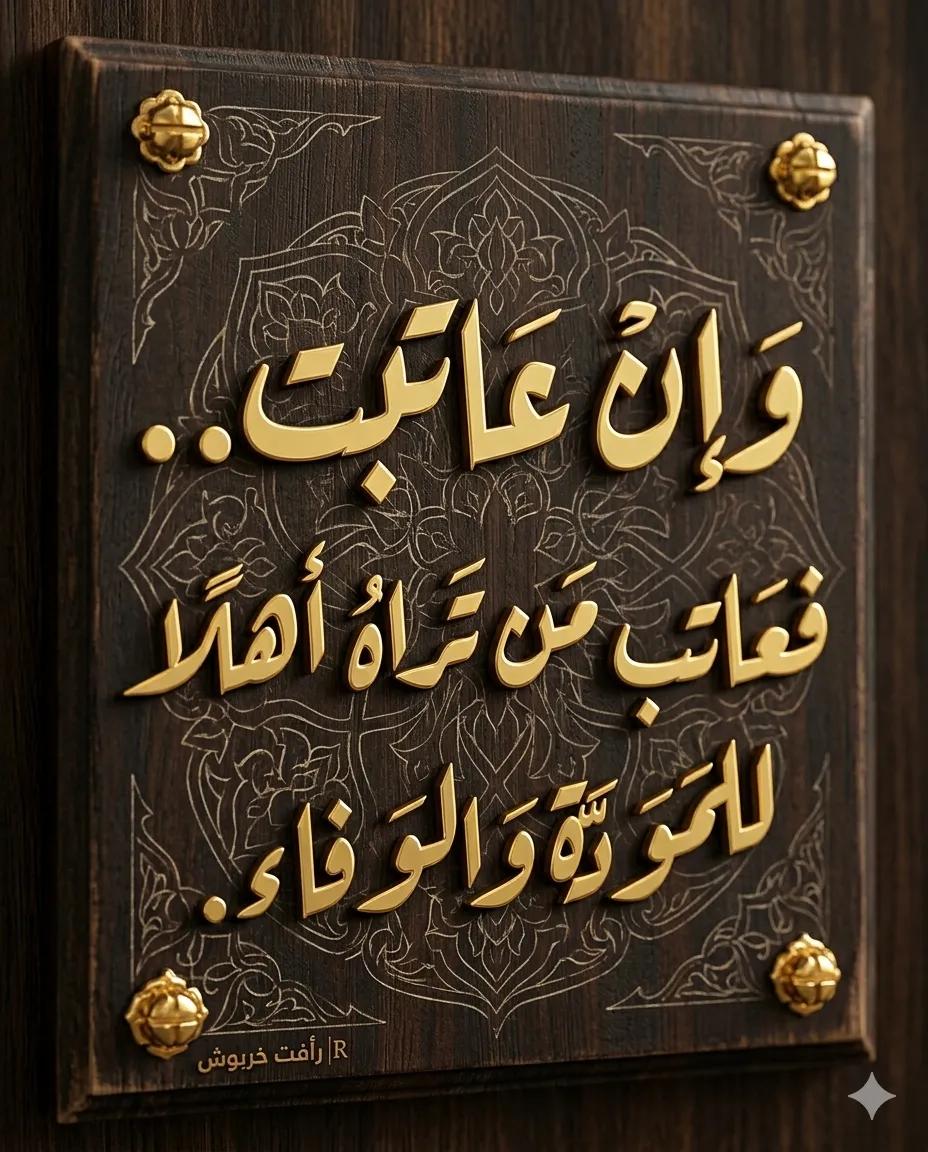 وَإِنْ عَاتَبت..
فعَاتب مَن تَراهُ أهلًا
للمَوَدَّة وَالوَفاء.
رأفت خربوش|R